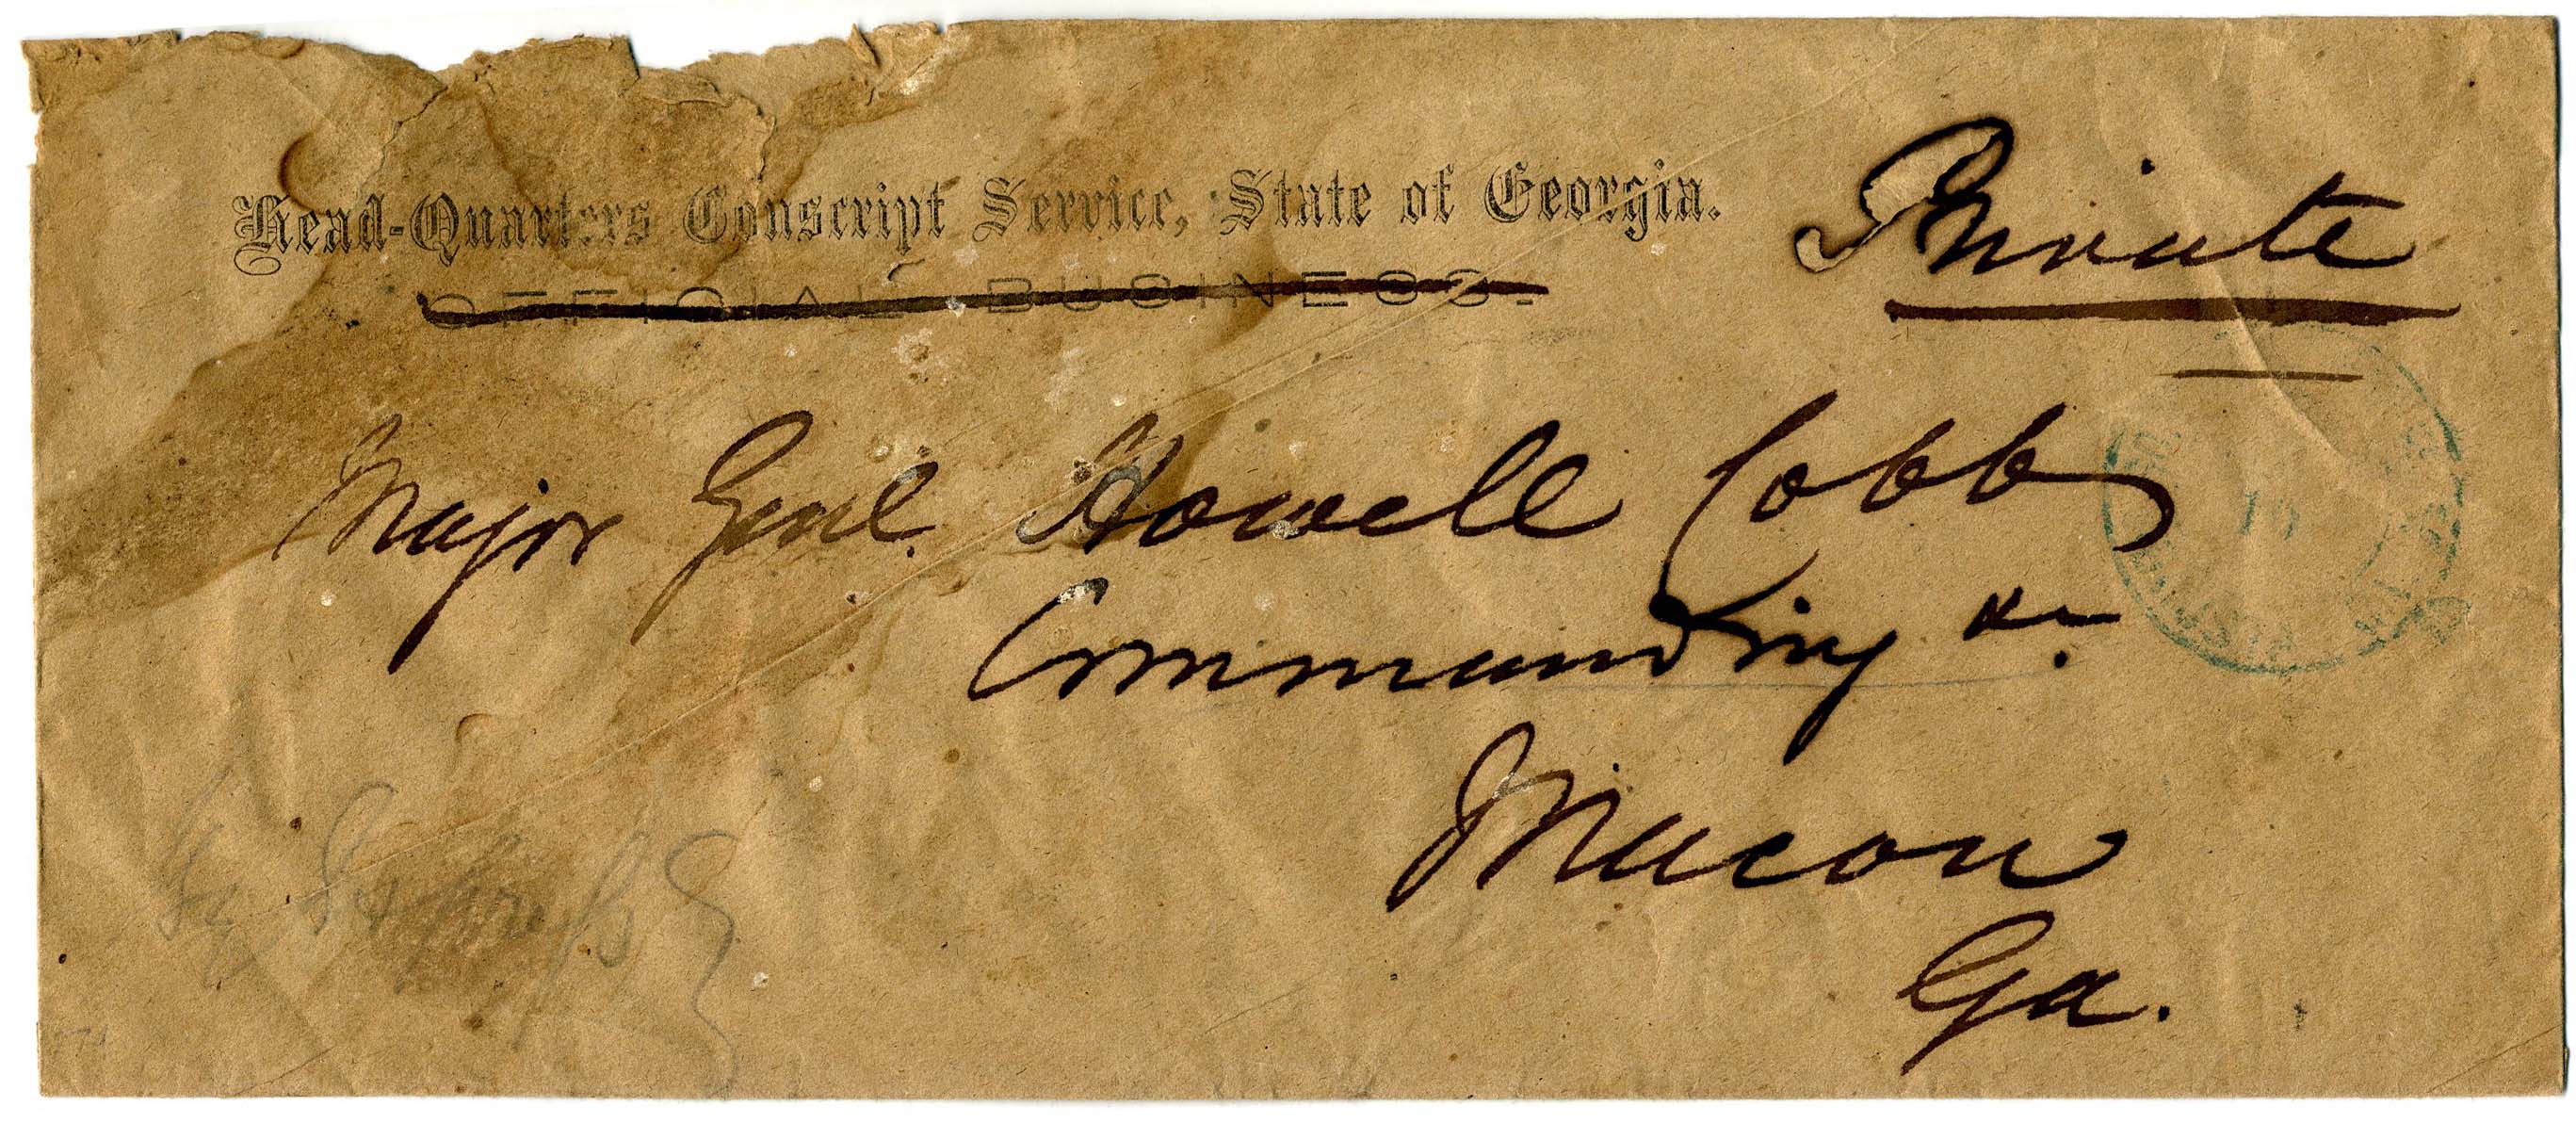 Head-Quarters Conscript Service, State of Georgia.
OFFICIAL BUSINESS.
Private
Major Genl. Howell Cobb
Commanding &c.
Macon
Ga.